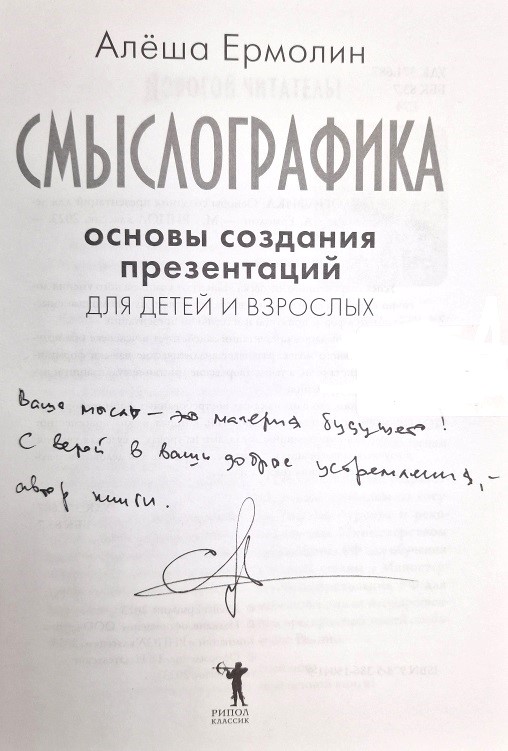 Алёша Ермолин
СМЫСЛОГРАФИКА
основы создания
презентаций
ДЛЯ ДЕТЕЙ И ВЗРОСЛЫХ
Ваша мысль – это материя будущего!
С верой в ваши добрые устремления, –
автор книги.
РИПОЛ
КЛАССИК